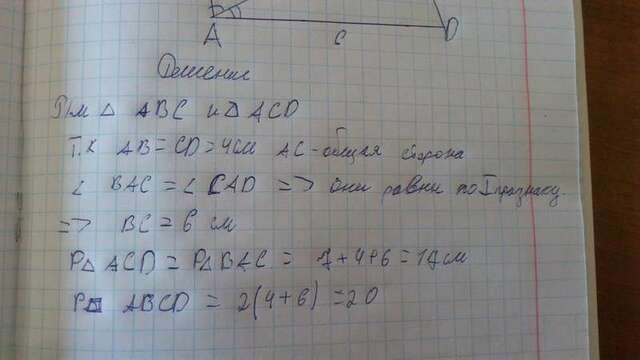 A c D
Решение
Р/м △ ABC и △ ACD
Т.к AB = CD = 4см AC - общая сторона
∠ BAC = ∠ CAD => они равны по I признаку.
=> BC = 6 см
P△ ACD = P△ BAC = 7+4+6 = 17см
P ABCD = 2(4+6) = 20